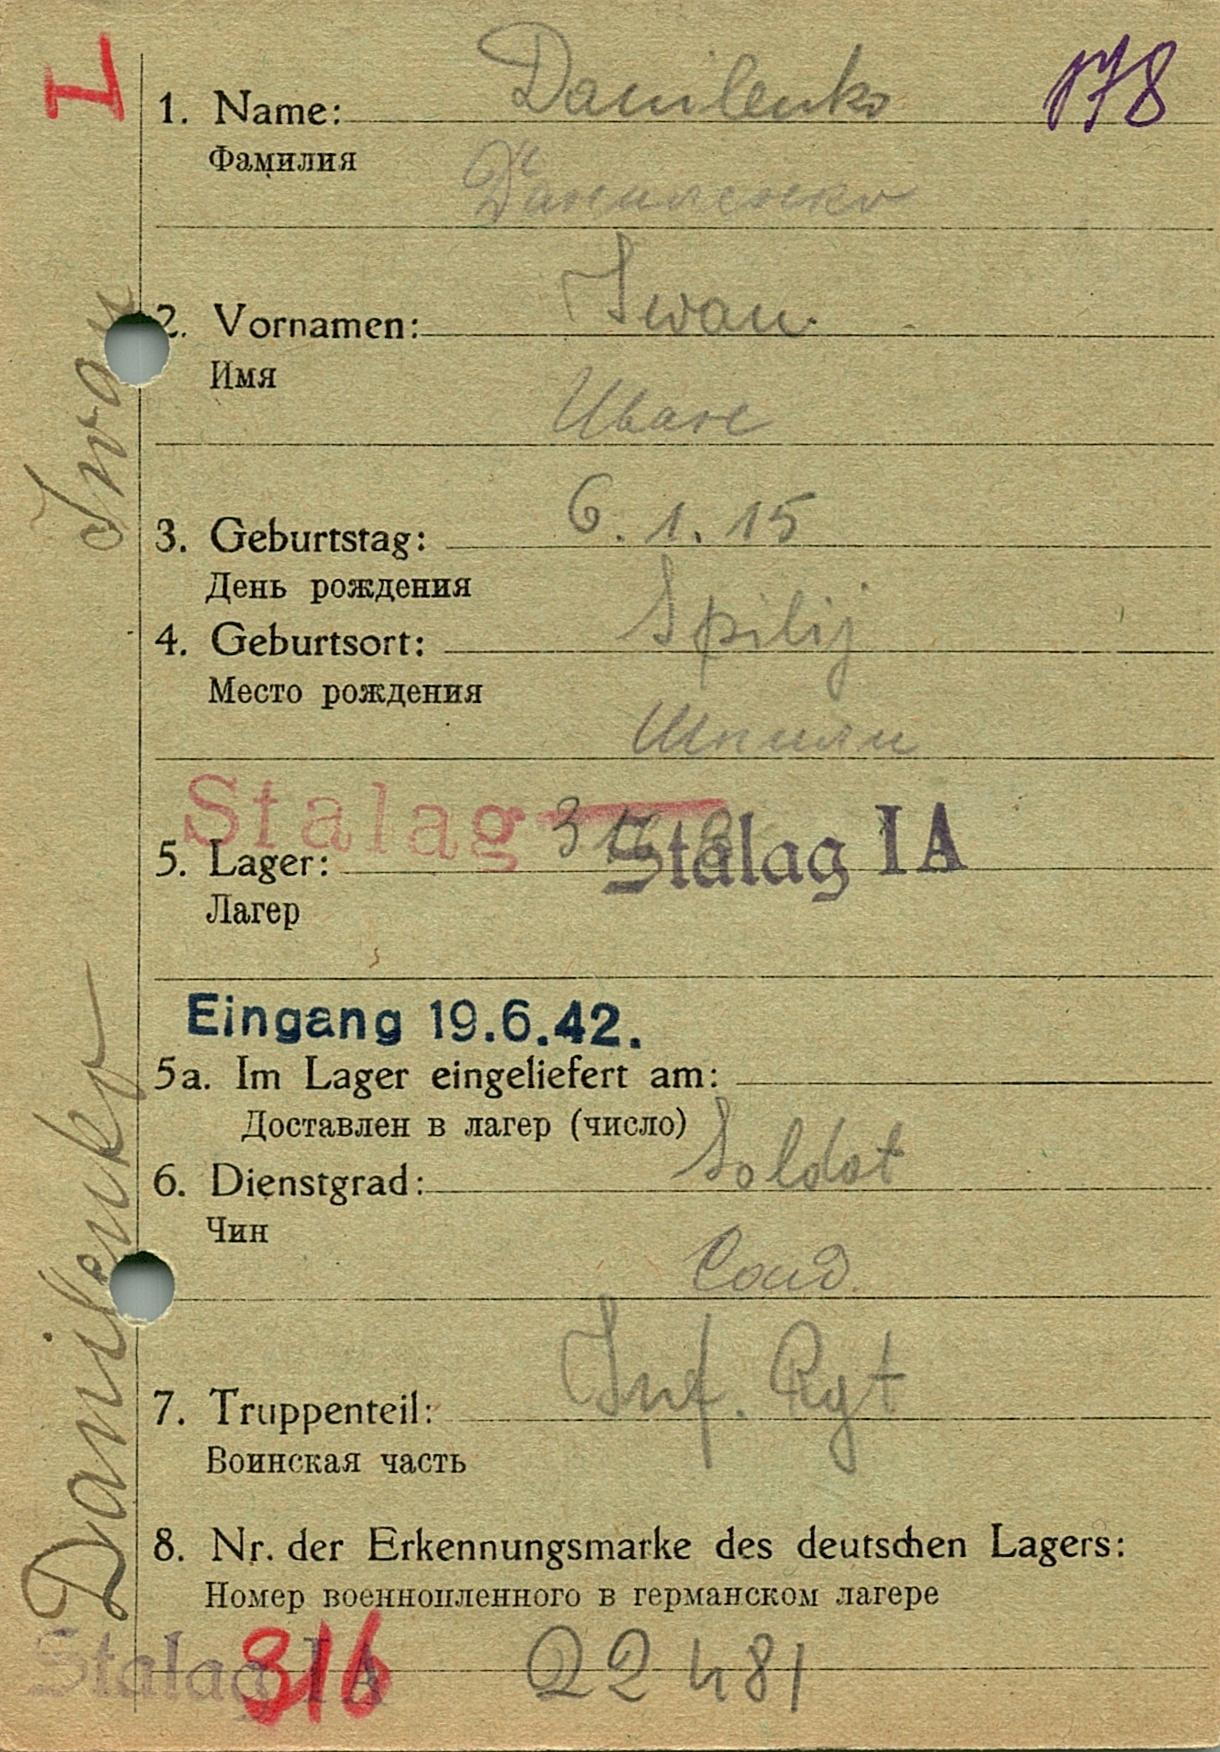 I
178
1. Name: Danilenko
Фамилия Даниленко
2. Vornamen: Iwan
Имя Иван
3. Geburtstag: 6.1.15
День рождения
4. Geburtsort: Spilij
Место рождения Шпили
Stalag
5. Lager: Stalag IA
Лагер
Eingang 19.6.42.
5a. Im Lager eingeliefert am:
Доставлен в лагер (число)
6. Dienstgrad: Soldat
Чин Солд.
7. Truppenteil: Inf. Rgt
Воинская часть
8. Nr. der Erkennungsmarke des deutschen Lagers:
Номер военнопленного в германском лагере
Stalag IA 316 22481
Danilenko Iwan